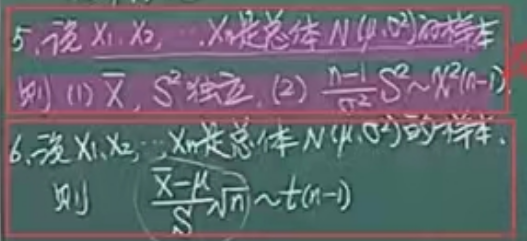 5、设 X₁, X₂, …, Xₙ是总体 N(μ,σ²)的样本
则 (1) X̄, S²独立, (2) (n-1)/σ² S² ~ χ²(n-1).
6、设 X₁, X₂, …, Xₙ是总体 N(μ,σ²)的样本.
则 (X̄-μ)/S √n ~ t(n-1)